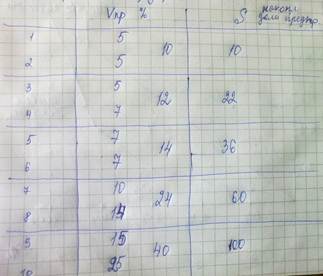 Vпр % S накопл.
доля предпр.
1 5
10 10
2 5
3 5
12 22
4 7
5 7
14 36
6 7
7 10
24 60
8 14
9 15
40 100
10 25